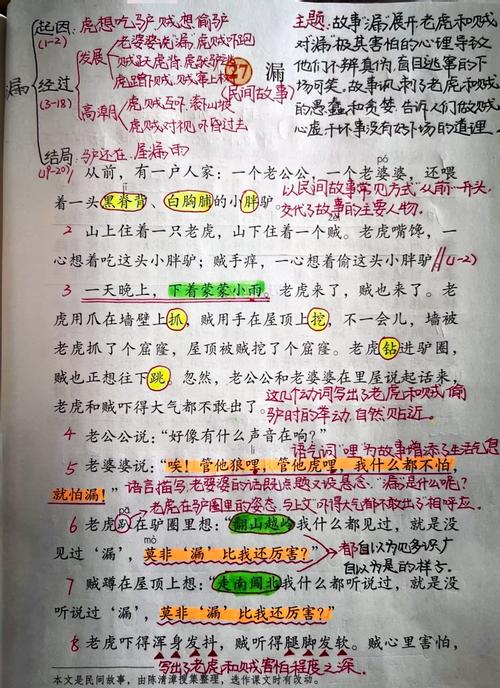 漏
起因：虎想吃驴，贼想偷驴
(1-2)
经过
(3-18)
发展
老婆婆说"漏"，虎贼吓跑
贼跃虎背，虎驮贼跑
虎蹭下贼，贼窜上树
高潮
虎、贼互吓，滚山坡
虎、贼对视，吓昏过去
结局：驴还在，屋漏雨
(19-20)
主题：故事"漏"展开老虎和贼
对"漏"极其害怕的心理导致
他们不辨真伪，盲目逃窜的下
场可笑。故事讽刺了老虎和贼
的愚蠢和贪婪，告诉人们做贼
心虚，干坏事没有好下场的道理。
27 漏
(民间故事)
从前，有一户人家：一个老公公，一个老婆婆，还喂
pó
着一头黑脊背、白胸脯的小胖驴。
jǐ
以民间故事常见方式"从前"开头，
交代了故事的主要人物。
2 山上住着一只老虎，山下住着一个贼。老虎嘴馋，一
心想着吃这头小胖驴；贼手痒，一心想着偷这头小胖驴。
(1-2)
3 一天晚上，下着蒙蒙小雨。老虎来了，贼也来了。老
虎用爪在墙壁上抓，贼用手在屋顶上挖，不一会儿，墙被
老虎抓了个窟窿，屋顶被贼挖了个窟窿。老虎钻进驴圈，
贼也正想往下跳。忽然，老公公和老婆婆在里屋说起话来，
老虎和贼吓得大气都不敢出了。
这几个动词写出了老虎和贼偷
驴时的举动，自然贴近。
4 老公公说："好像有什么声音在响？"
语气词"哩"为故事增添了生活气息
5 老婆婆说："唉！管他狼哩，管他虎哩，我什么都不怕，
就怕漏！"
语言描写，老婆婆的话既点题又设悬念。"漏"是什么呢？
老虎在驴圈里的姿态，与上文"吓得大气都不敢出了"相呼应。
6 老虎趴在驴圈里想："翻山越岭我什么都见过，就是没
见过'漏'，莫非'漏'比我还厉害？"
mò
都自以为见多识广
自以为是的样子。
7 贼蹲在屋顶上想："走南闯北我什么都听说过，就是没
听说过'漏'，莫非'漏'比我还厉害？"
8 老虎吓得浑身发抖，贼听得腿脚发软。贼心里害怕，
写出了老虎和贼害怕程度之深。
本文是民间故事，由陈清漳搜集整理，选作课文时有改动。